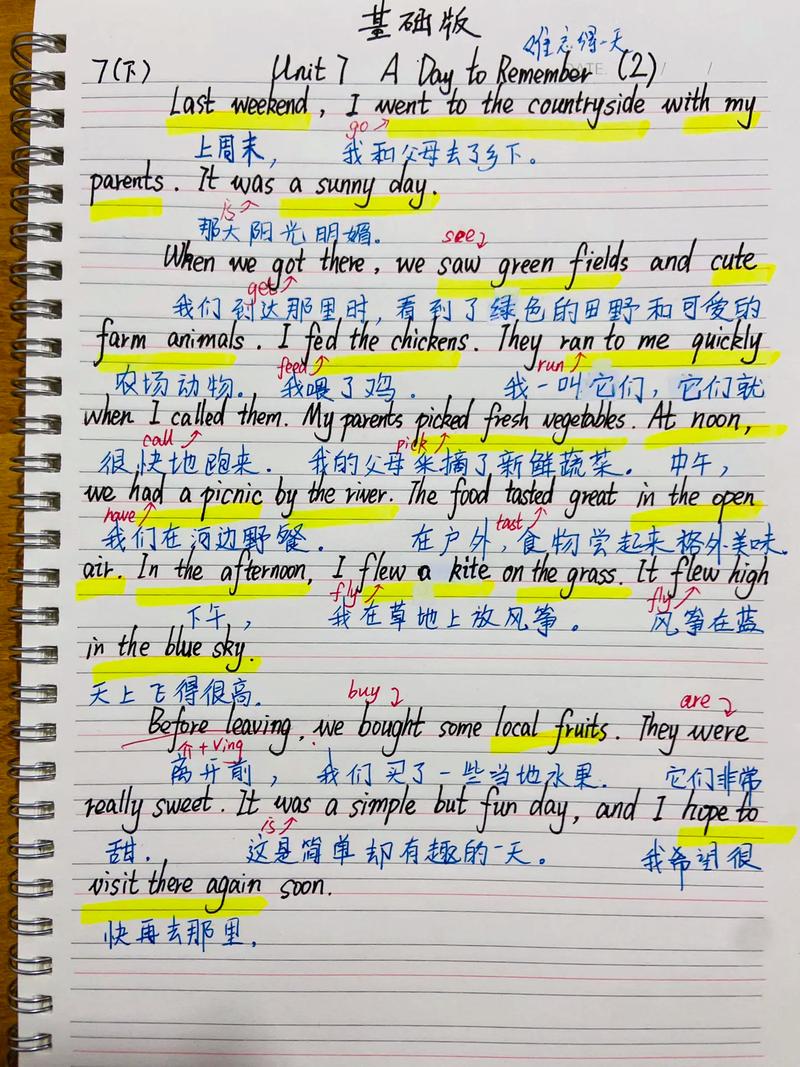 基础版
难忘得一天
7(下) Unit 7 A Day to Remember (2)
DATE / /
Last weekend, I went to the countryside with my
go
上周末, 我和父母去了乡下。
parents. It was a sunny day.
is
那天阳光明媚.
see
When we got there, we saw green fields and cute
get
我们到达那里时,看到了绿色的田野和可爱的
farm animals. I fed the chickens. They ran to me quickly
feed run
农场动物. 我喂了鸡. 我一叫它们,它们就
when I called them. My parents picked fresh vegetables. At noon,
call pick
很快地跑来. 我的父母采摘了新鲜蔬菜。 中午,
we had a picnic by the river. The food tasted great in the open
have tast
我们在河边野餐. 在户外,食物尝起来格外美味.
air. In the afternoon, I flew a kite on the grass. It flew high
fly fly
下午, 我在草地上放风筝。 风筝在蓝
in the blue sky.
天上飞得很高.
buy are
Before leaving, we bought some local fruits. They were
介+Ving
离开前, 我们买了一些当地水果. 它们非常
really sweet. It was a simple but fun day, and I hope to
is
甜. 这是简单却有趣的一天。 我希望很
visit there again soon.
快再去那里.